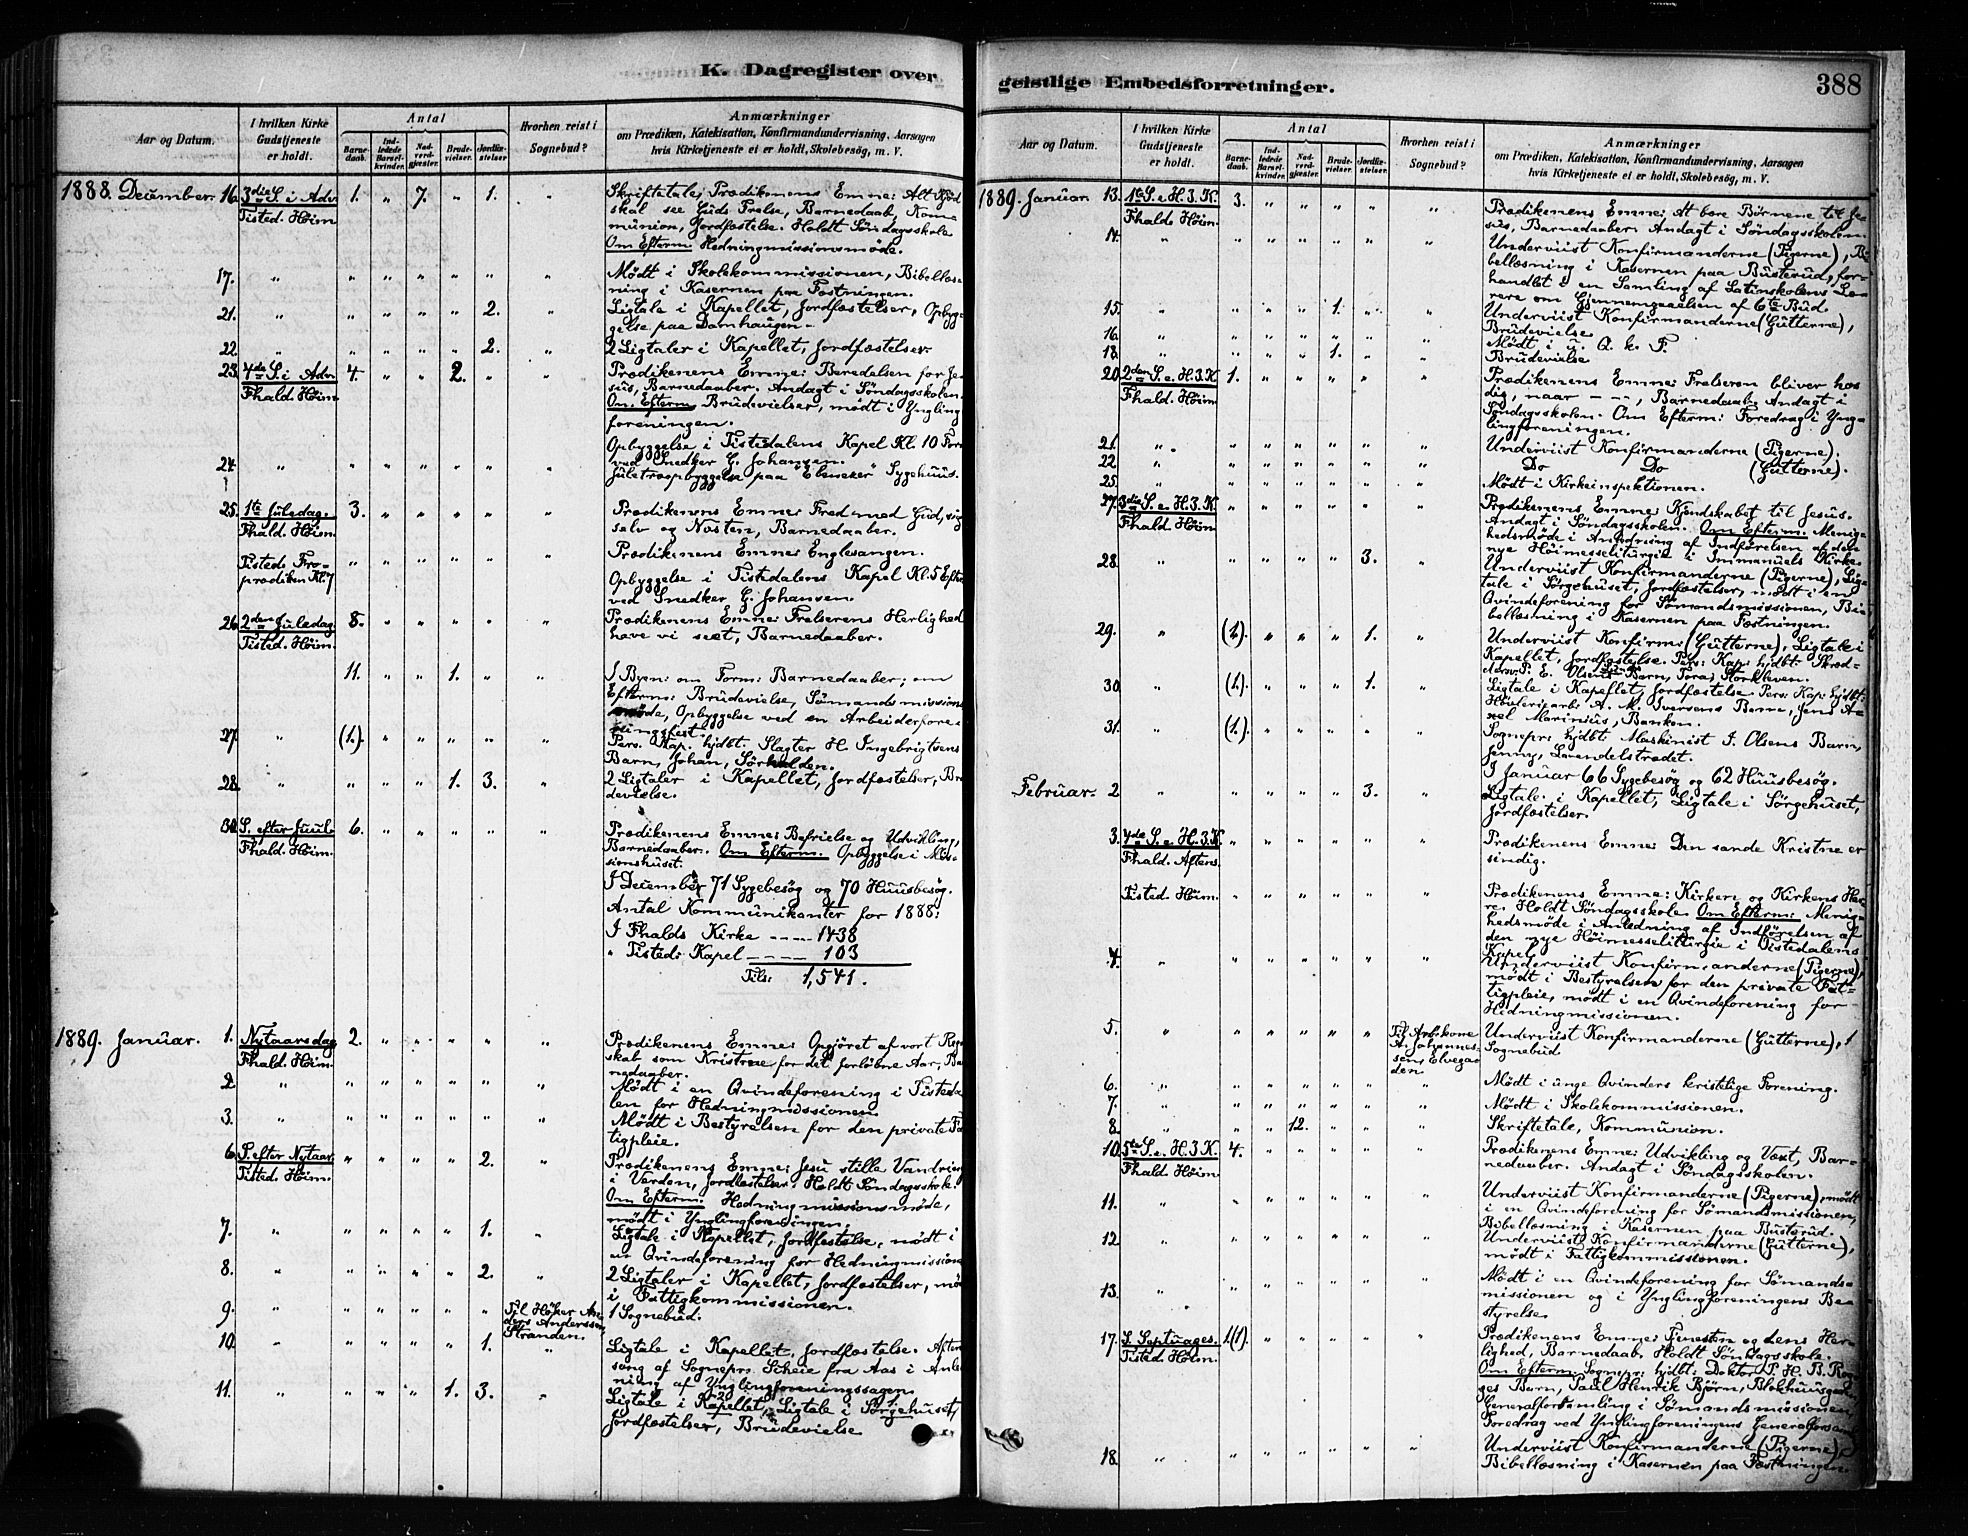 K. Dagregister over
Aar og Datum.
I hvilken Kirke Gudstjeneste er holdt.
Antal
Barnedaab.
Indledede Barselkvinder.
Nadverdgjæster.
Brudevielser.
Jordfæstelser.
Hvorhen reist i Sognebud?
Anmærkninger
om Prædiken, Katekisation, Konfirmandundervisning, Aarsagen
hvis Kirketjeneste ei er holdt, Skolebesøg, m. V.
1888. December. 16. 3die S. i Adv. 1. " 7. " 1. Skriftetale, Prædikenens Emne: Alt Kjød
Tisted. Høim. skal see Guds Frelse, Barnedaab, Kom-
munion, Jordfæstelse. Holdt Søndagsskole
Om Efterm. Hedningmissionsmøde.
17. " " " " " " " Mødt i Skolekommissionen, Bibellæs-
ning i Kasernen paa Fæstningen.
21. " " " " " 2. " Ligtale i Kapellet, Jordfæstelser, Opbyg-
gelse paa Damhaugen.
22. " " " " " 2. " 2 Ligtaler i Kapellet, Jordfæstelser.
23. 4de S. i Adv. 4. " " 2. " " Prædikenens Emne: Beredelsen for Je-
Fhald. Høim. sus, Barnedaaber. Andagt i Søndagsskolen.
Om Efterm. Brudevielser, mødt i Yngling
foreningen.
Opbyggelse i Tistedalens Kapel Kl. 10 Form
24. " " " " " " " ved Snedker G. Johansen.
Juletræopbyggelse paa "Ebenezer" Sygehuus.
25. 1ste Juledag. 3. " " " " " Prædikenens Emne: Fred med Gud, sig
Fhald. Høim. selv og Næsten, Barnedaaber.
Tisteds Fro- " " " " " " Prædikenens Emne: Englesangen.
prædiken Kl. 7 Opbyggelse i Tistedalens Kapel Kl. 5 Eft.
ved Snedker G. Johansen.
26. 2den Juledag. 8. " " " " " Prædikenens Emne: Frelserens Herlighed
Tisted. Høim. have vi seet, Barnedaaber.
11. " " 1. " " I Byen: om Form: Barnedaaber; om
Efterm: Brudevielse, Sømandsmissions
møde, Opbyggelse ved en Arbeiderfore-
ningsfest.
27. " (1.) " " " " " Pers. Kap. hjdbt. Slagter H. Ingebrigtsens
Barn, Johan, Sørhalden.
28. " " " " 1. 3. " 2 Ligtaler i Kapellet, Jordfæstelser, Bru-
devielse.
30. S. efter Juul. 6. " " " " " Prædikenens Emne: Befrielse og Udvikling,
Fhald. Høim. Barnedaaber. Om Efterm. Opbyggelse i Mis-
sionshuset.
I December 71 Sygebesøg og 70 Huusbesøg.
Antal Kommunikanter for 1888:
I Fhalds Kirke ---- 1438
" Tisteds Kapel ---- 103
Tils: 1,541.
1889. Januar. 1. Nytaarsdag. 2. " " " " " Prædikenens Emne: Opgjøret af vort Regn-
Fhald. Høim. skab som Kristne for det forløbne Aar, Bar-
nedaaber.
2. " " " " " " " Mødt i en Qvindeforening i Tisteda-
len for Hedningmissionen.
3. " " " " " " " Mødt i Bestyrelsen for den private Fat-
tigpleie.
6. S. efter Nytaar. " " " " 2. " Prædikenens Emne: Jesu stille Vandring
Tisted. Høim. i Verden, Jordfæstelser. Holdt Søndagsskole.
Om Efterm. Hedningmissionsmøde,
mødt i Ynglingforeningen.
7. " " " " " 1. " Ligtale i Kapellet, Jordfæstelse, mødt i
en Qvindeforening for Hedningmission
8. " " " " " 2. " 2 Ligtaler i Kapellet, Jordfæstelser, mødt
i Fattigkommissionen.
9. " " " " " " Til Høker An- 1 Sognebud.
ders Andersen,
Stranden.
10. " " " " " 1. " Ligtale i Kapellet, Jordfæstelse. Aften
sang af Sognepr. Scheie fra Aas i Anled-
ning af Ynglingforeningssagen.
11. " " " " 1. 3. " Ligtale i Kapellet, Ligtale i Sørgehuset,
Jordfæstelser, Brudevielse
geistlige Embedsforretninger.
388
Aar og Datum.
I hvilken Kirke Gudstjeneste er holdt.
Antal
Barnedaab.
Indledede Barselkvinder.
Nadverdgjæster.
Brudevielser.
Jordfæstelser.
Hvorhen reist i Sognebud?
Anmærkninger
om Prædiken, Katekisation, Konfirmandundervisning, Aarsagen
hvis Kirketjeneste ei er holdt, Skolebesøg, m. V.
1889. Januar. 13. 1ste S. e. H. 3. K. 3. " " " " " Prædikenens Emne: At bære Børnene til Je-
Fhald. Høim. sus, Barnedaaber. Andagt i Søndagsskolen.
14. " " " " " " " Underviist Konfirmanderne (Pigerne), Bi-
bellæsning i Kasernen paa Busterud, for-
handlet i en Samling af Latinskolens Læ-
rere om Gjennemgaaelsen af 6te Bud.
15. " " " " 1. " " Underviist Konfirmanderne (Gutterne),
Brudevielse
16. " " " " " " " Mødt i u. Q. k. F.
18. " " " " 1. " " Brudevielse
20. 2den S. e. H. 3. K. 1. " " " " " Prædikenens Emne: Frelseren bliver hos
Fhald. Høim. dig, naar – – –, Barnedaab, Andagt i
Søndagsskolen. Om Efterm: Foredrag i Yng-
lingforeningen.
21. " " " " " " " Underviist Konfirmanderne (Pigerne).
22. " " " " " " " Do Do (Gutterne).
25. " " " " " " " Mødt i Kirkeinspektionen.
27. 3die S. e. H. 3. K. " " " " " " Prædikenens Emne: Kjendskabet til Jesus.
Fhald. Høim. Andagt i Søndagsskolen. Om Efterm. Menig-
hedsmøde i Anledning af Indførelsen af den
nye Høimesseliturgie i Immanuels Kirke.
28. " " " " " 3. " Underviist Konfirmanderne (Pigerne), Lig-
tale i Sørgehuset, Jordfæstelser, mødt i en
Qvindeforening for Sømandsmissionen, Bi-
bellæsning i Kasernen paa Fæstningen.
29. " (1.) " " " 1. " Underviist Konfirm: (Gutterne), Ligtale i
Kapellet, Jordfæstelse. Pers: Kap: hjdbt. Skræd-
dersv. P. E. Olsens Barn, Tora, Storkleven.
30. " (1.) " " " 1. " Ligtale i Kapellet, Jordfæstelse. Pers. Kap. hjdbt.
Høvleriarb. A. M. Iversens Barn, Jens Ax-
el Marinius, Banken.
31. " (1.) " " " " " Sognepr: hjdbt. Maskinist J. Olsens Barn,
Jenny, Lavendelstrædet.
I Januar 66 Sygebesøg og 62 Huusbesøg.
Februar. 2. " " " " " 3. " Ligtale i Kapellet, Ligtale i Sørgehuset,
Jordfæstelser.
3. 4de S. e. H. 3. K. " " " " " " Prædikenens Emne: Den sande Kristne er
Fhald. Aftens. sindig.
Tisted. Høim. " " " " " " Prædikenens Emne: Kirken og Kirkens Her-
re. Holdt Søndagsskole. Om Efterm: Menig-
hedsmøde i Anledning af Indførelsen af
den nye Høimesseliturgie i Tistedalens
Kapel.
4. " " " " " " " Underviist Konfirmanderne (Pigerne),
mødt i Bestyrelsen for den private Fat-
tigpleie, mødt i en Qvindeforening for
Hedningmissionen.
5. " " " " " " Til Arbkone Underviist Konfirmanderne (Gutterne), 1
A. Johannes- Sognebud
sen, Elvega-
den
6. " " " " " " " Mødt i unge Qvinders kristelige Forening.
7. " " " " " " " Mødt i Skolekommissionen.
8. " " " 12. " " " Skriftetale, Kommunion.
10. 5te S. e. H. 3. K. 4. " " " " " Prædikenens Emne: Udvikling og Vext, Bar-
Fhald. Høim. nedaaber. Andagt i Søndagsskolen.
11. " " " " " " " Underviist Konfirmanderne (Pigerne), mødt
i en Qvindeforening for Sømandsmissionen,
Bibellæsning i Kasernen paa Busterud.
12. " " " " " " " Underviist Konfirmanderne (Gutterne),
mødt i Fattigkommissionen.
13. " " " " " " " Mødt i en Qvindeforening for Sømands-
missionen og i Ynglingforeningens Be-
styrelse
17. S. Septuages. 1.(1). " " " " " Prædikenens Emne: Tjenesten og dens Her-
Tisted. Høim. lighed, Barnedaab. Holdt Søndagsskole.
Om Efterm: Sognepr: hjdbt. Doktor P. H. B.
Barn, Paul Henrik Bjørn, Blokhuusgaden
Generalforsamling i Sømandsmissionen,
Foredrag ved Ynglingforeningens Generalforsaml.
18. " " " " " " " Underviist Konfirmanderne (Pigerne),
Bibellæsning i Kasernen paa Fæstningen.